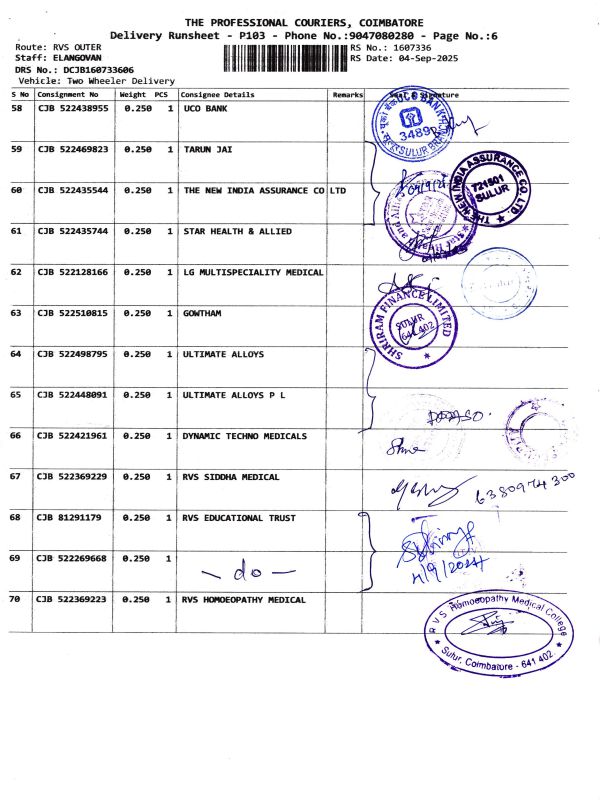 THE PROFESSIONAL COURIERS, COIMBATORE
Delivery Runsheet - P103 - Phone No.:9047080280 - Page No.:6
Route: RVS OUTER RS No.: 1607336
Staff: ELANGOVAN RS Date: 04-Sep-2025
DRS No.: DCJB160733606
Vehicle: Two Wheeler Delivery
S No Consignment No Weight PCS Consignee Details Remarks Seal & Signature
58 CJB 522438955 0.250 1 UCO BANK
UCO BANK
3489
SULUR
59 CJB 522469823 0.250 1 TARUN JAI
60 CJB 522435544 0.250 1 THE NEW INDIA ASSURANCE CO LTD
THE NEW INDIA ASSURANCE CO. LTD.
721501
SULUR
61 CJB 522435744 0.250 1 STAR HEALTH & ALLIED
62 CJB 522128166 0.250 1 LG MULTISPECIALITY MEDICAL
63 CJB 522510815 0.250 1 GOWTHAM
SHRIRAM FINANCE LIMITED
SULUR
641 402
64 CJB 522498795 0.250 1 ULTIMATE ALLOYS
65 CJB 522448091 0.250 1 ULTIMATE ALLOYS P L
66 CJB 522421961 0.250 1 DYNAMIC TECHNO MEDICALS
67 CJB 522369229 0.250 1 RVS SIDDHA MEDICAL
6380974300
68 CJB 81291179 0.250 1 RVS EDUCATIONAL TRUST
69 CJB 522269668 0.250 1 - do -
70 CJB 522369223 0.250 1 RVS HOMOEOPATHY MEDICAL
R V S Homoeopathy Medical College
Sulur, Coimbatore - 641 402.